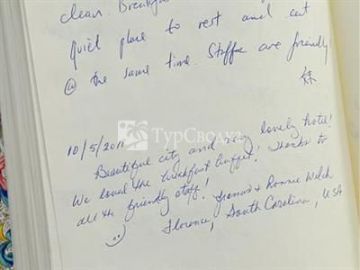 clean. Breakfast
quiet place to rest and eat
@ the same time. Staffs are friendly
ТурСводка
10/5/2011
Beautiful city and very lovely hotel!
We loved the breakfast buffet! Thanks to
all the friendly staff. & Ronnie Welch
Florence, South Carolina, USA